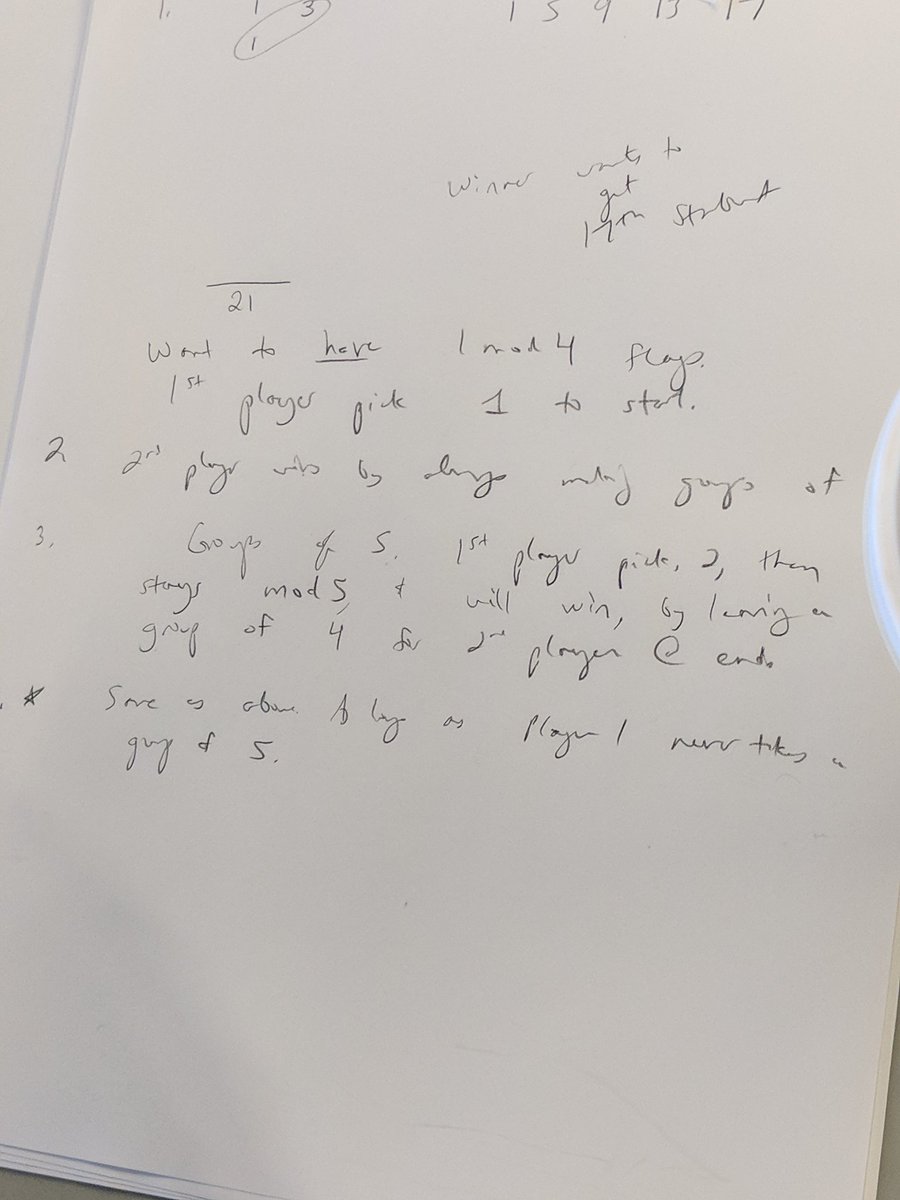 1. 1 3 1 5 9 13 17
1
Winner wants to
get
17th
21
Want to have 1 mod 4 flags.
1st player pick 1 to start.
2 2nd player wins by always making groups of
3. Groups of 5. 1st player picks 2, then
stays mod 5, & will win, by leaving a
group of 4 for 2nd player @ end.
* Same as above as long as Player 1 never takes a
group of 5.